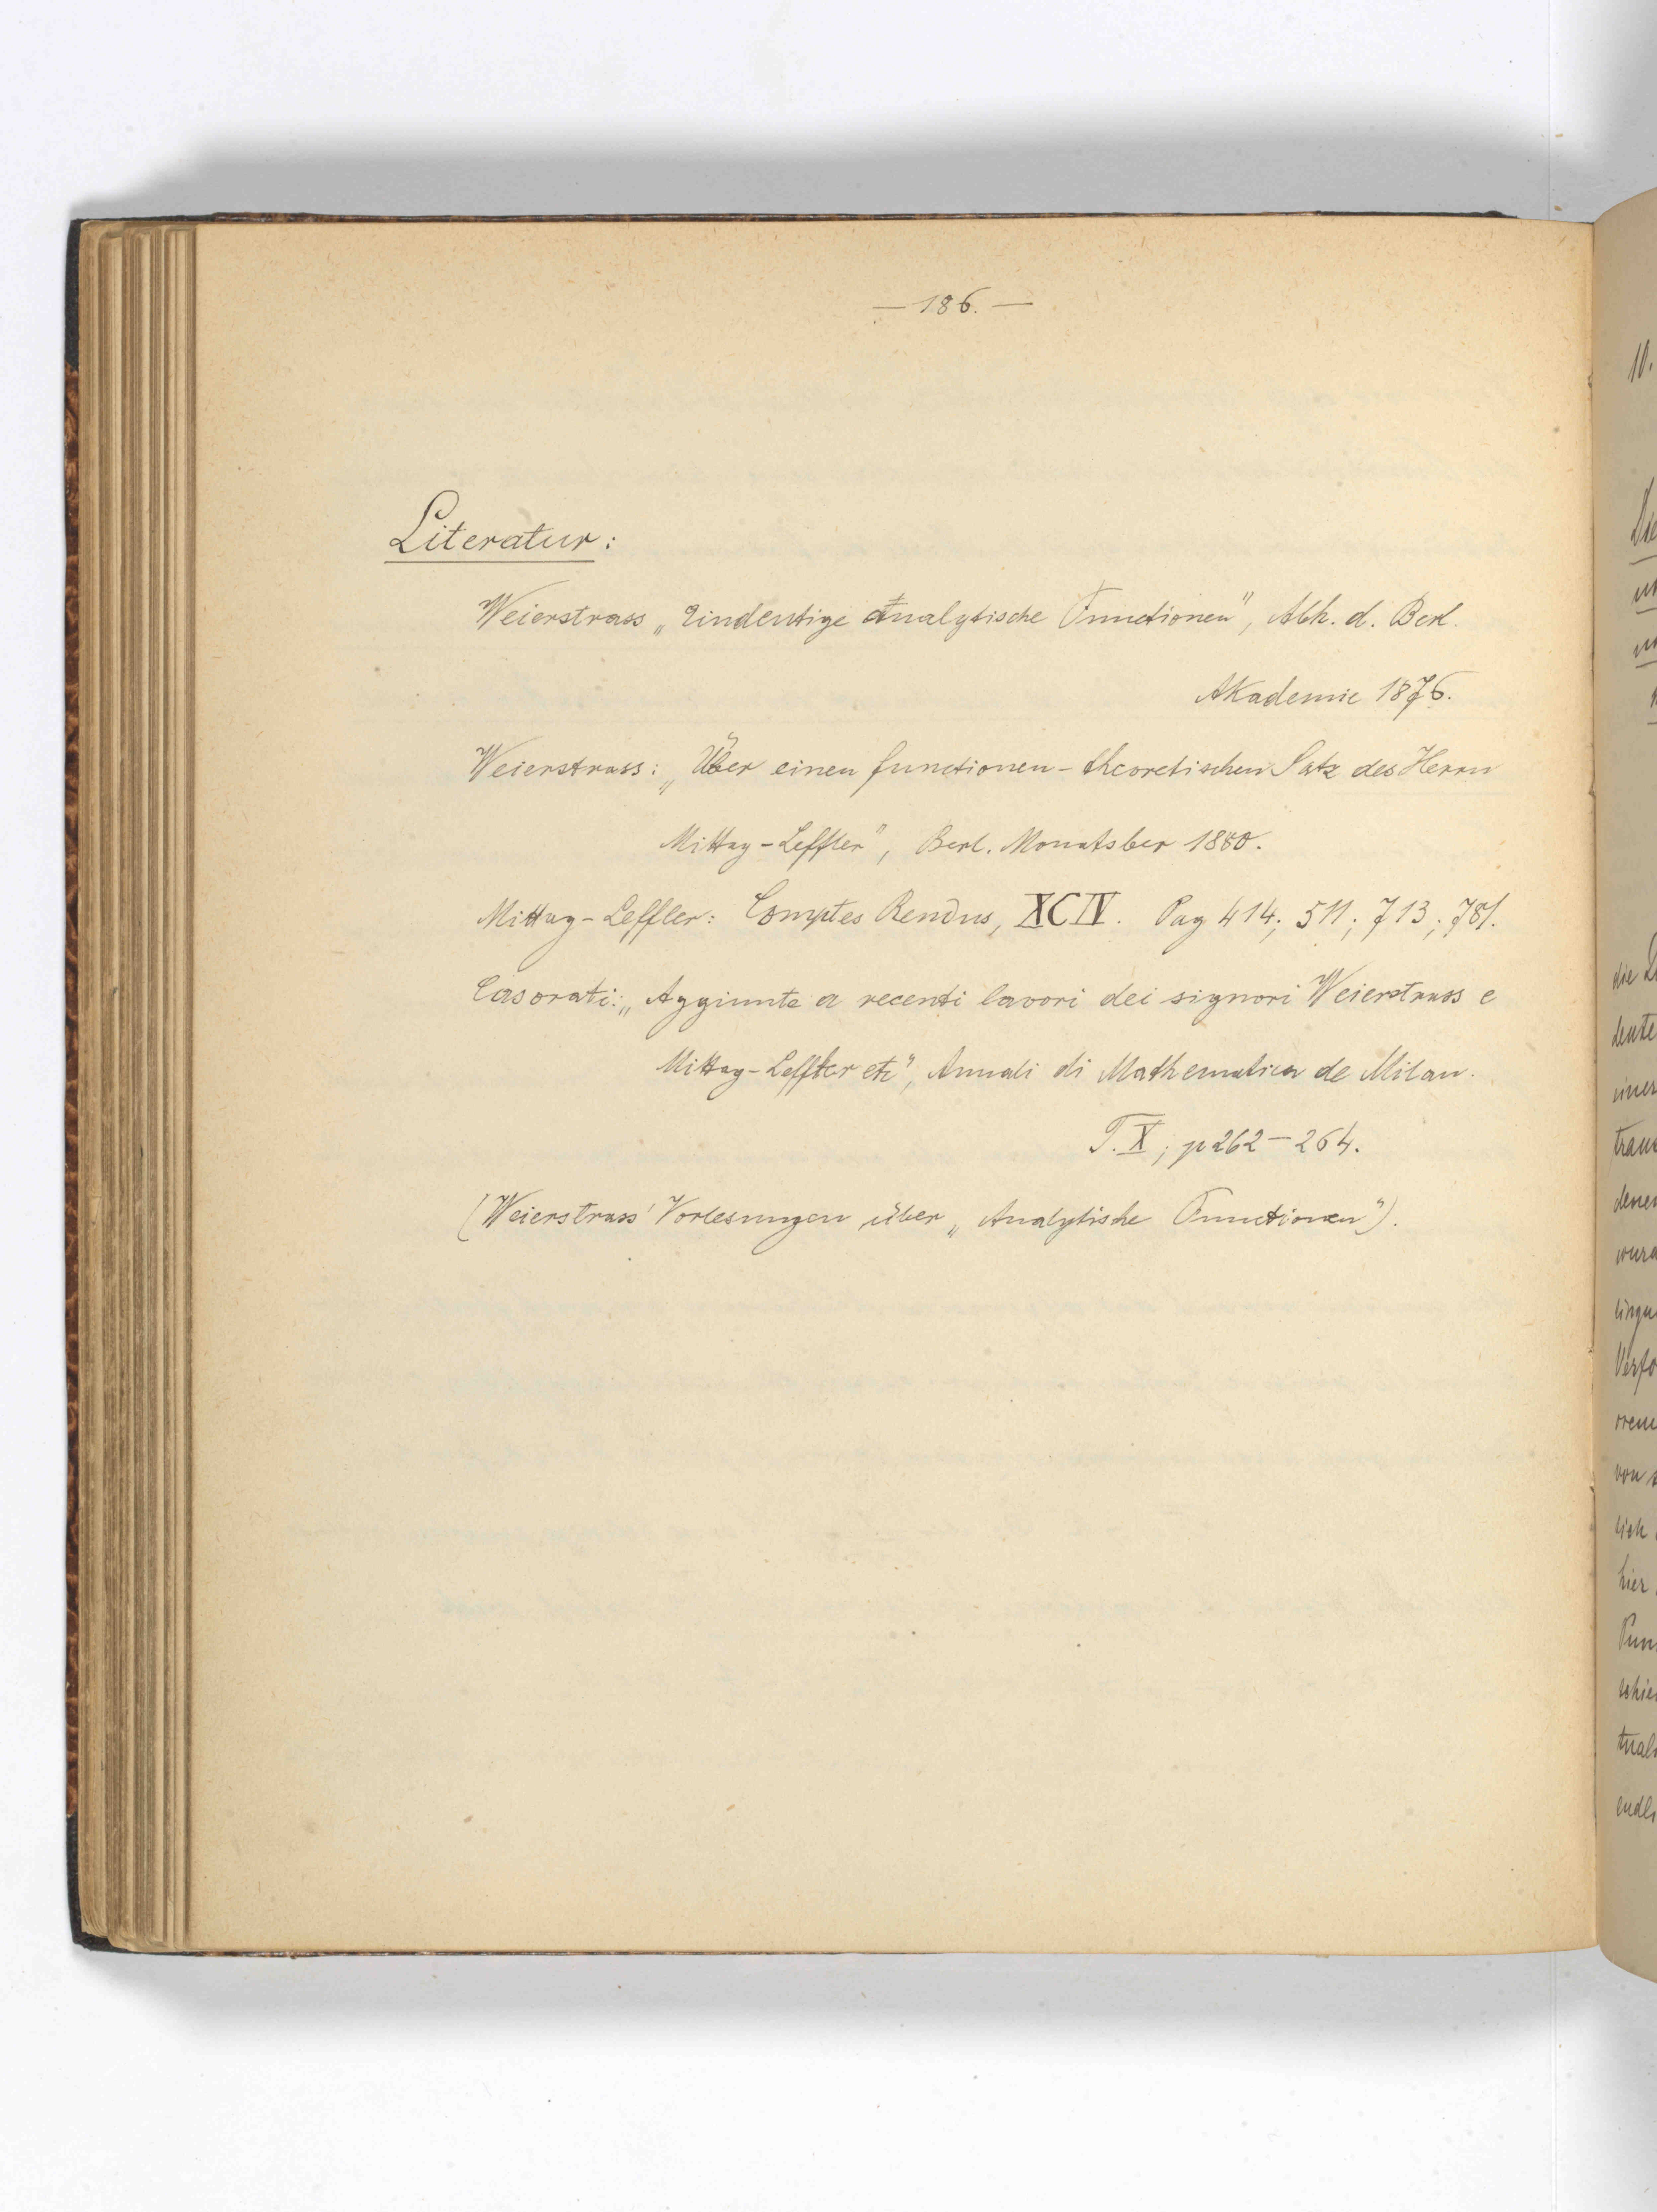 — 186. —
Literatur:
Weierstrass „Eindeutige Analytische Functionen", Abh. d. Berl.
Akademie 1876.
Weierstrass: „Über einen functionen-theoretischen Satz des Herrn
Mittag-Leffler", Berl. Monatsber 1880.
Mittag-Leffler: Comptes Rendus, XCIV. Pag 414; 511; 713; 781.
Casorati: „Aggiunte a recenti lavori dei signori Weierstrass e
Mittag-Leffler etc", Annali di Mathematica de Milan.
T. X; p 262–264.
(Weierstrass' Vorlesungen über „Analytische Functionen").
10.
Die
die
einer
denen
von
lich
hier